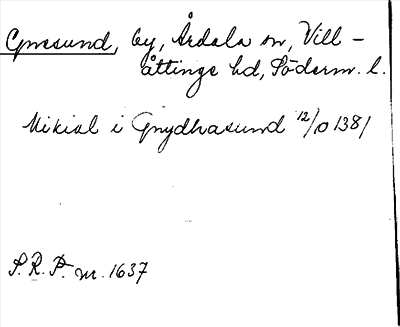 Gnesund, by, Årdala sn, Vill-
åttinge hd, Söderm. l.
Mikial i Gnydhasund 12/10 1381
S. R. P. nr. 1637